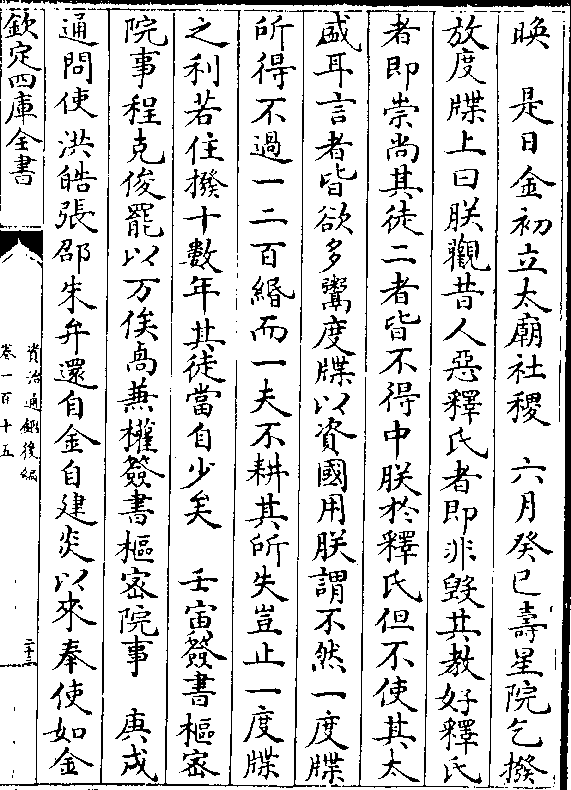 㬇　是日金初立太廟社稷　六月癸巳壽星院乞撥
放度牒上曰朕觀昔人惡釋氏者即非毁其教好釋氏
者即崇尚其徒二者皆不得中朕於釋氏但不使其太
盛耳言者皆欲多鬻度牒以資國用朕謂不然一度牒
所得不過一二百緡而一夫不耕其所失豈止一度牒
之利若住撥十數年其徒當自少矣　壬寅簽書樞密
院事程克俊罷以万俟卨兼權簽書樞密院事　庚戌
通問使洪皓張邵朱弁還自金自建炎以來奉使如金
欽定四庫全書
資治通鑑後編
卷一百十五
二十三